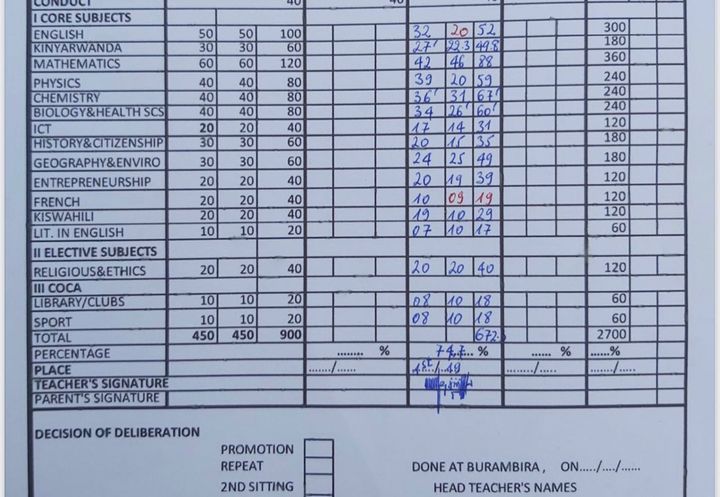 CONDUCT 40 40
I CORE SUBJECTS
ENGLISH 50 50 100 32 20 52 300
KINYARWANDA 30 30 60 27' 22.3 49.8 180
MATHEMATICS 60 60 120 42 46 88 360
PHYSICS 40 40 80 39 20 59 240
CHEMISTRY 40 40 80 36' 31 67' 240
BIOLOGY&HEALTH SCS 40 40 80 34 26' 60' 240
ICT 20 20 40 17 14 31 120
HISTORY&CITIZENSHIP 30 30 60 20 15 35 180
GEOGRAPHY&ENVIRO 30 30 60 24 25 49 180
ENTREPRENEURSHIP 20 20 40 20 19 39 120
FRENCH 20 20 40 10 09 19 120
KISWAHILI 20 20 40 19 10 29 120
LIT. IN ENGLISH 10 10 20 07 10 17 60
II ELECTIVE SUBJECTS
RELIGIOUS&ETHICS 20 20 40 20 20 40 120
III COCA
LIBRARY/CLUBS 10 10 20 08 10 18 60
SPORT 10 10 20 08 10 18 60
TOTAL 450 450 900 672.5 2700
PERCENTAGE ........ % 74,7... % ...... % ......%
PLACE ....../...... 1st../..49 ....../...... ....../......
TEACHER'S SIGNATURE
PARENT'S SIGNATURE
DECISION OF DELIBERATION
PROMOTION
REPEAT DONE AT BURAMBIRA , ON...../..../......
2ND SITTING HEAD TEACHER'S NAMES